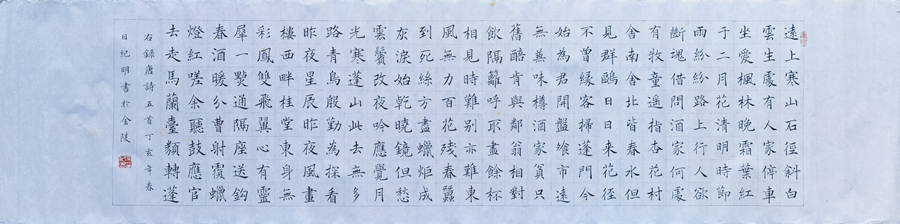 遠上寒山石徑斜白
雲生處有人家停車
坐愛楓林晚霜葉紅
于二月花清明時節
雨紛紛路上行人欲
斷魂借問酒家何處
有牧童遥指杏花村
舍南舍北皆春水但
見群鷗日日來花徑
不曾緣客掃蓬門今
始為君開盤飧市遠
無兼味樽酒家貧只
舊醅肯與鄰翁相對
飲隔籬呼取盡餘杯
相見時難別亦難東
風無力百花殘春蠶
到死絲方盡蠟炬成
灰淚始乾曉鏡但愁
雲鬢改夜吟應覺月
光寒蓬山此去無多
路青鳥殷勤為探看
昨夜星辰昨夜風畫
樓西畔桂堂東身無
彩鳳雙飛翼心有靈
犀一點通隔座送鈎
春酒暖分曹射覆蠟
燈紅嗟余聽鼓應官
去走馬蘭臺類轉蓬
右録唐詩五首丁亥年春
日紀明書於金陵